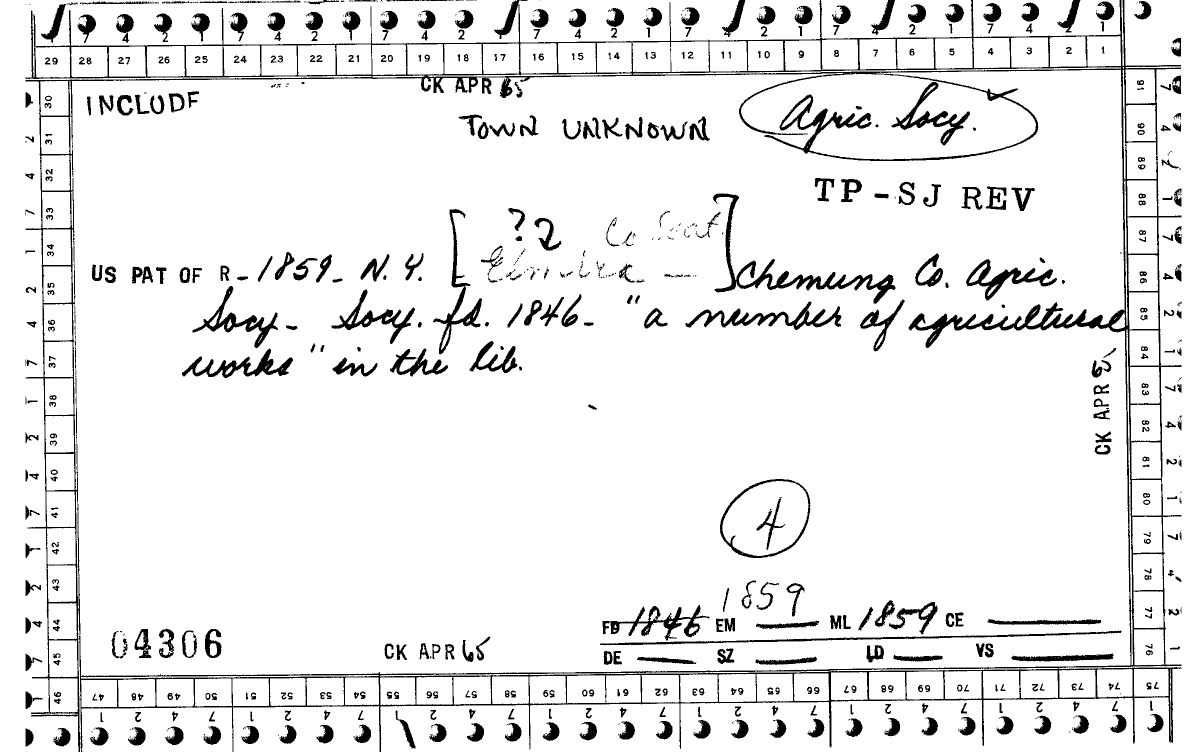 7 4 2 1 7 4 2 1 7 4 2 1 7 4 2 1 7 4 2 1 7 4 2 1 7 4 2 1
29 28 27 26 25 24 23 22 21 20 19 18 17 16 15 14 13 12 11 10 9 8 7 6 5 4 3 2 1
CK APR 65
INCLUDE
TOWN UNKNOWN
Agric. Socy.
TP-SJ REV
?2 Co Seat
US PAT OF R-1859-N.Y. [Elmira —] Chemung Co. Agric.
Socy- Socy. fd. 1846- "a number of agricultural
works" in the lib.
CK APR 65
4
1859
FD 1846 EM ML 1859 CE
04306
CK APR 65
DE SZ LD VS
30 31 32 33 34 35 36 37 38 39 40 41 42 43 44 45 46
91 90 89 88 87 86 85 84 83 82 81 80 79 78 77 76 75
47 48 49 50 51 52 53 54 55 56 57 58 59 60 61 62 63 64 65 66 67 68 69 70 71 72 73 74 75
1 2 4 7 1 2 4 7 1 2 4 7 1 2 4 7 1 2 4 7 1 2 4 7 1 2 4 7 1